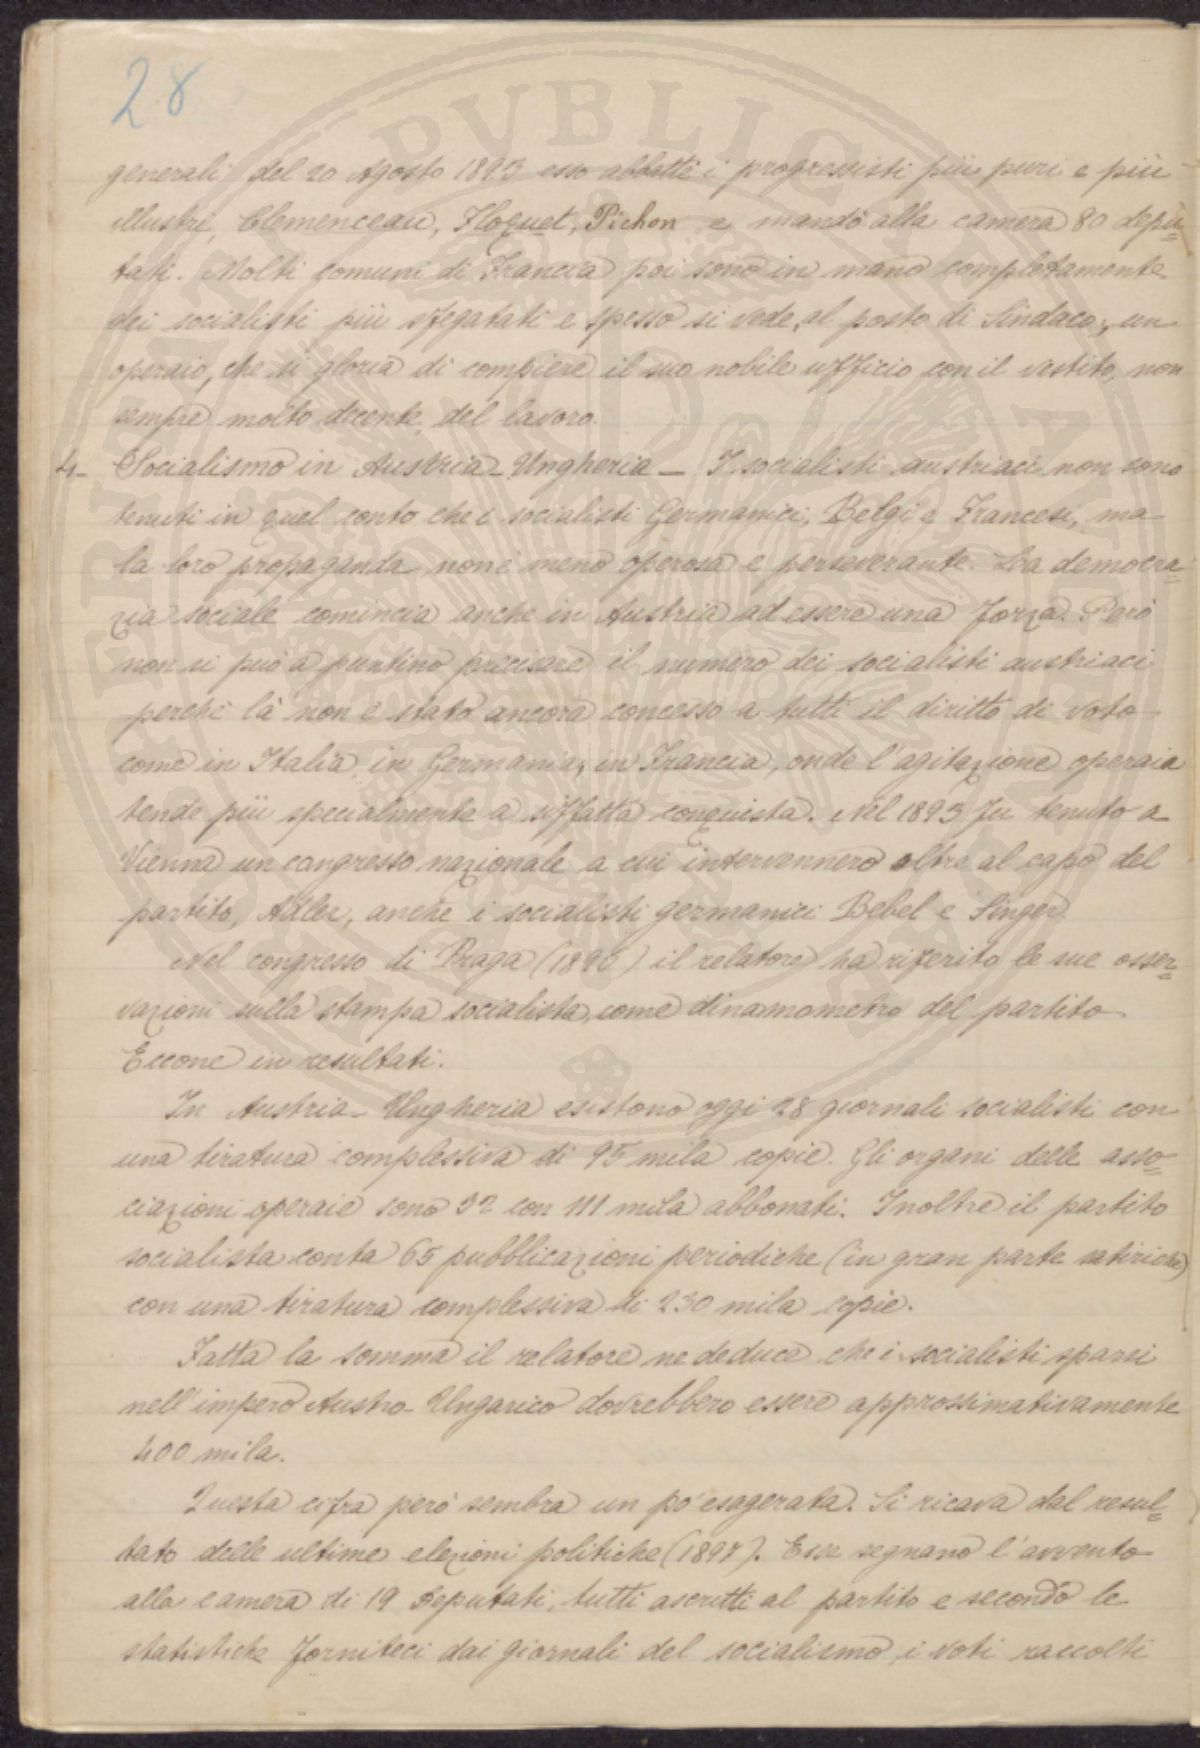 28
generali del 20 Agosto 1893 esso abbattè i progressisti più puri e più
illustri, Clemenceau, Floquet, Pichon e mandò alla camera 80 depu=
tati. Molti comuni di Francia poi sono in mano completamente
dei socialisti più sfegatati e spesso si vede, al posto di Sindaco, un
operaio, che si gloria di compiere il suo nobile ufficio con il vestito, non
sempre molto decente, del lavoro.
4- Socialismo in Austria-Ungheria - I socialisti austriaci non sono
tenuti in quel conto che i socialisti Germanici, Belgi e Francesi, ma
la loro propaganda non è meno operosa e perseverante. La democra=
zia sociale comincia anche in Austria ad essere una forza. Però
non si può a puntino precisare il numero dei socialisti austriaci
perchè là non è stato ancora concesso a tutti il diritto di voto
come in Italia, in Germania, in Francia, onde l'agitazione operaia
tende più specialmente a siffatta conquista. Nel 1893 fu tenuto a
Vienna un congresso nazionale a cui intervennero oltre al capo del
partito, Adler, anche i socialisti germanici Bebel e Singer.
Nel congresso di Praga (1896) il relatore ha riferito le sue osser=
vazioni sulla stampa socialista, come dinamometro del partito.
Eccone in resultati.
In Austria-Ungheria esistono oggi 28 giornali socialisti con
una tiratura complessiva di 95 mila copie. Gli organi delle asso=
ciazioni operaie sono 32 con 111 mila abbonati. Inoltre il partito
socialista conta 65 pubblicazioni periodiche (in gran parte satiriche)
con una tiratura complessiva di 230 mila copie.
Fatta la somma il relatore ne deduce che i socialisti sparsi
nell'impero Austro-Ungarico dovrebbero essere approssimativamente
400 mila.
Questa cifra però sembra un po' esagerata. Si ricava dal resul=
tato delle ultime elezioni politiche (1897). Esse segnano l'avvento
alla camera di 19 deputati, tutti ascritti al partito e secondo le
statistiche forniteci dai giornali del socialismo, i voti raccolti